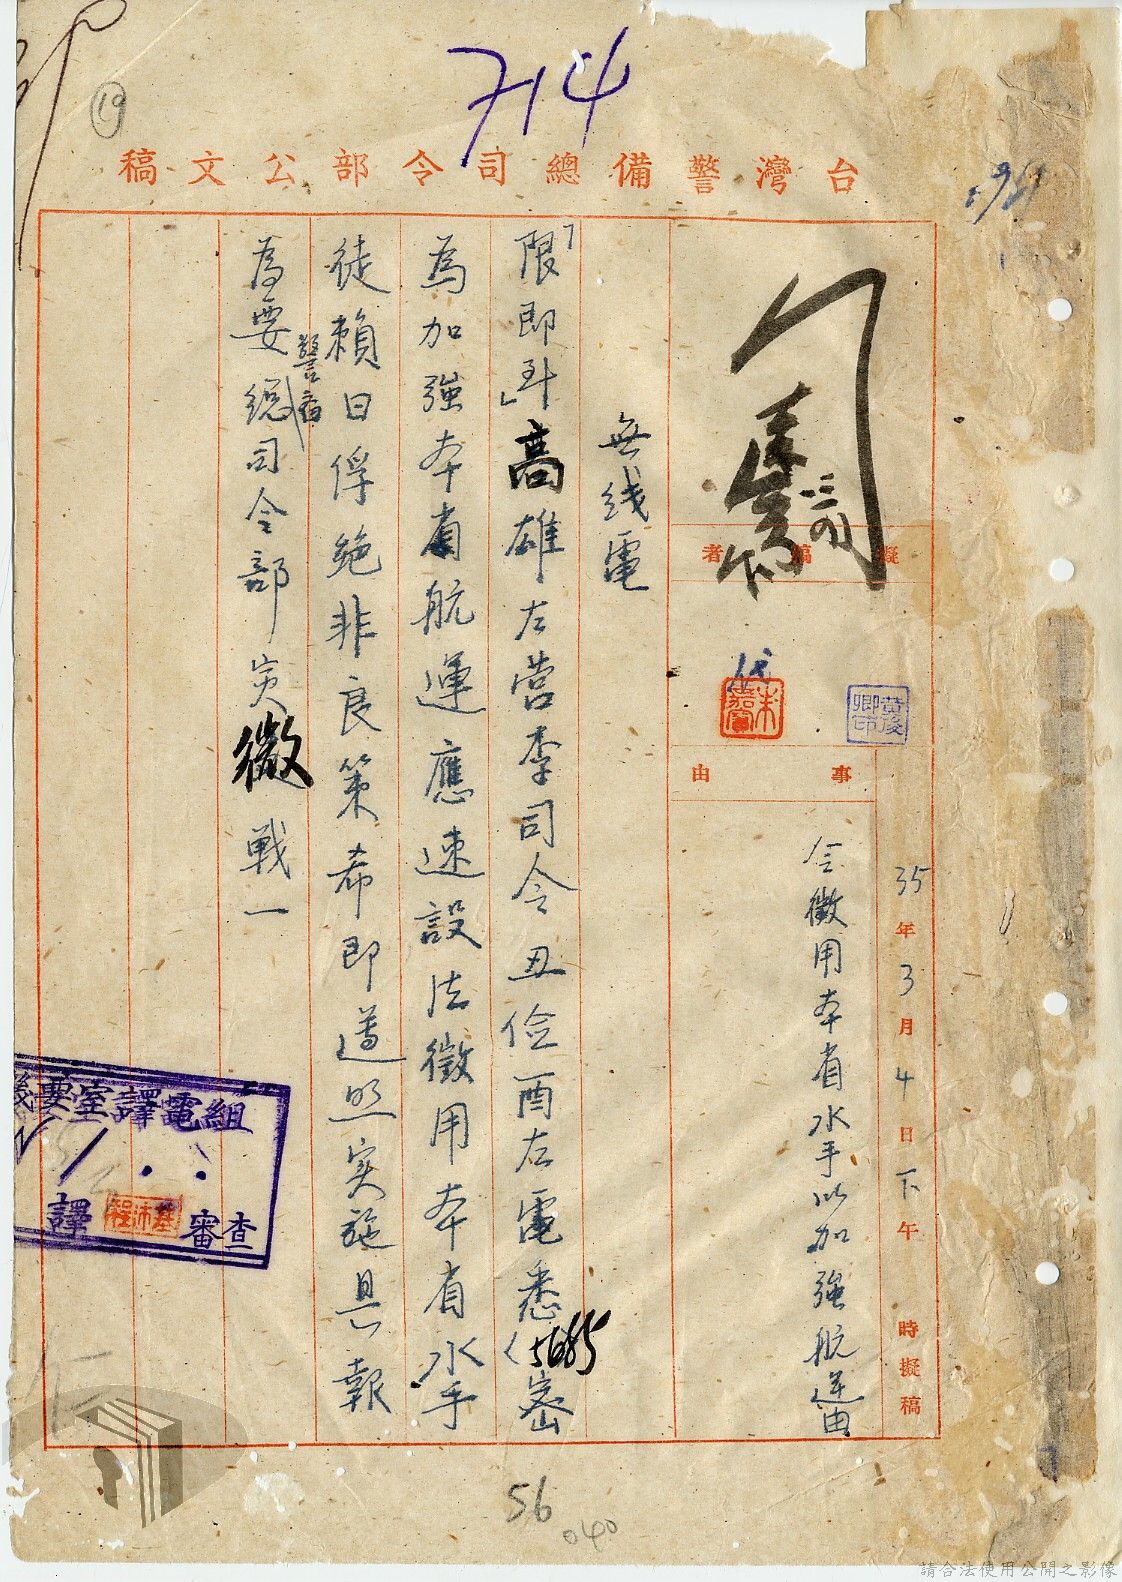 714
19
台灣警備總司令部公文稿
擬稿者
代
朱嘉賓
黃俊卿印
事由
35年3月4日下午 時擬稿
令徵用本省水手以加強航運由
無线電
「限即到」高雄左营李司令丑儉酉左電悉(5685)密
為加強本省航運應速設法徵用本省水手
徒賴日俘絶非良策希即遵照实施具報
為要警备總司令部寅微戰一
機要室譯電組
譯 審查
56
040
請合法使用公開之影像